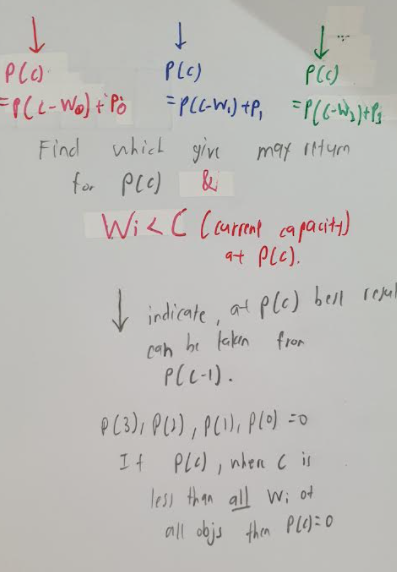 P(c) P(c) P(c)
=P(C-W0)+P0 =P(C-W1)+P1 =P(C-W2)+P2
Find which give max return
for P(c) &
Wi<C (current capacity)
at P(c).
indicate, at P(c) best resul
can be taken from
P(C-1).
P(3), P(2), P(1), P(0) =0
If P(c), when C is
less than all Wi of
all objs then P(c)=0